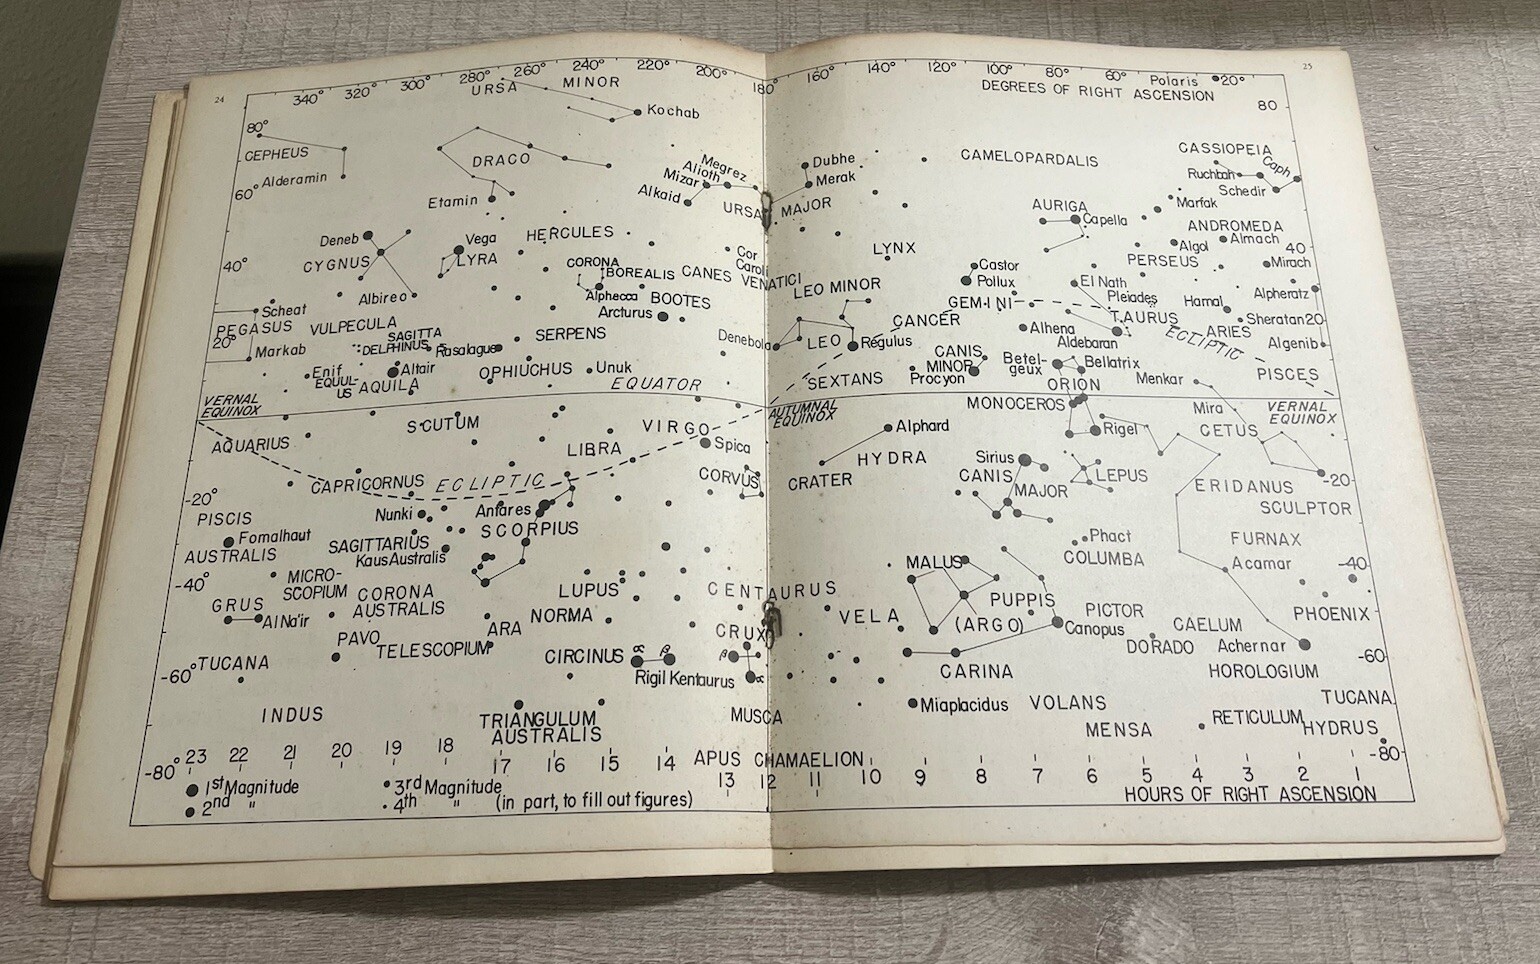 24
340° 320° 300° 280° 260° 240° 220° 200° 180°
URSA MINOR
Kochab
80°
CEPHEUS
DRACO
Alderamin
60°
Megrez
Alioth
Mizar
Alkaid
Etamin
URSA MAJOR
Deneb
Vega
HERCULES
CYGNUS
LYRA
40°
CORONA
BOREALIS
CANES
VENATICI
Cor
Caroli
Albireo
Alphecca
BOOTES
Arcturus
Scheat
PEGASUS
VULPECULA
20°
SAGITTA
DELPHINUS
Rasalague
SERPENS
Markab
Enif
EQUUL-
US
AQUILA
Altair
OPHIUCHUS
Unuk
EQUATOR
VERNAL
EQUINOX
SCUTUM
VIRGO
AQUARIUS
LIBRA
Spica
CAPRICORNUS
ECLIPTIC
CORVUS
-20°
Nunki
Antares
PISCIS
AUSTRALIS
Fomalhaut
SCORPIUS
SAGITTARIUS
Kaus Australis
MICRO-
SCOPIUM
CORONA
AUSTRALIS
LUPUS
CENTAURUS
-40°
GRUS
Al Na'ir
NORMA
ARA
PAVO
TELESCOPIUM
CRUX
CIRCINUS
α β
β
α
Rigil Kentaurus
-60°
TUCANA
INDUS
TRIANGULUM
AUSTRALIS
MUSCA
APUS CHAMAELION
-80°
23 22 21 20 19 18 17 16 15 14 13 12
1st Magnitude
2nd "
3rd Magnitude
4th " (in part, to fill out figures)
25
160° 140° 120° 100° 80° 60° Polaris 20°
DEGREES OF RIGHT ASCENSION
80
Dubhe
Merak
CAMELOPARDALIS
CASSIOPEIA
Caph
Ruchbah
Schedir
Marfak
AURIGA
Capella
ANDROMEDA
Almach
Algol
40
LYNX
PERSEUS
Mirach
Castor
Pollux
LEO MINOR
El Nath
Pleiades
Hamal
Alpheratz
GEMINI
TAURUS
CANCER
Sheratan 20
ECLIPTIC
ARIES
Alhena
Aldebaran
Algenib
Denebola
LEO
Regulus
CANIS
MINOR
Procyon
Betel-
geux
Bellatrix
SEXTANS
ORION
Menkar
PISCES
AUTUMNAL
EQUINOX
MONOCEROS
Mira
VERNAL
EQUINOX
Alphard
Rigel
CETUS
HYDRA
Sirius
CRATER
CANIS
MAJOR
LEPUS
-20
ERIDANUS
SCULPTOR
Phact
FURNAX
COLUMBA
MALUS
Acamar
-40
PUPPIS
PICTOR
PHOENIX
VELA
(ARGO)
Canopus
CAELUM
DORADO
Achernar
-60
CARINA
HOROLOGIUM
Miaplacidus
VOLANS
TUCANA
RETICULUM
HYDRUS
MENSA
-80
11 10 9 8 7 6 5 4 3 2 1
HOURS OF RIGHT ASCENSION